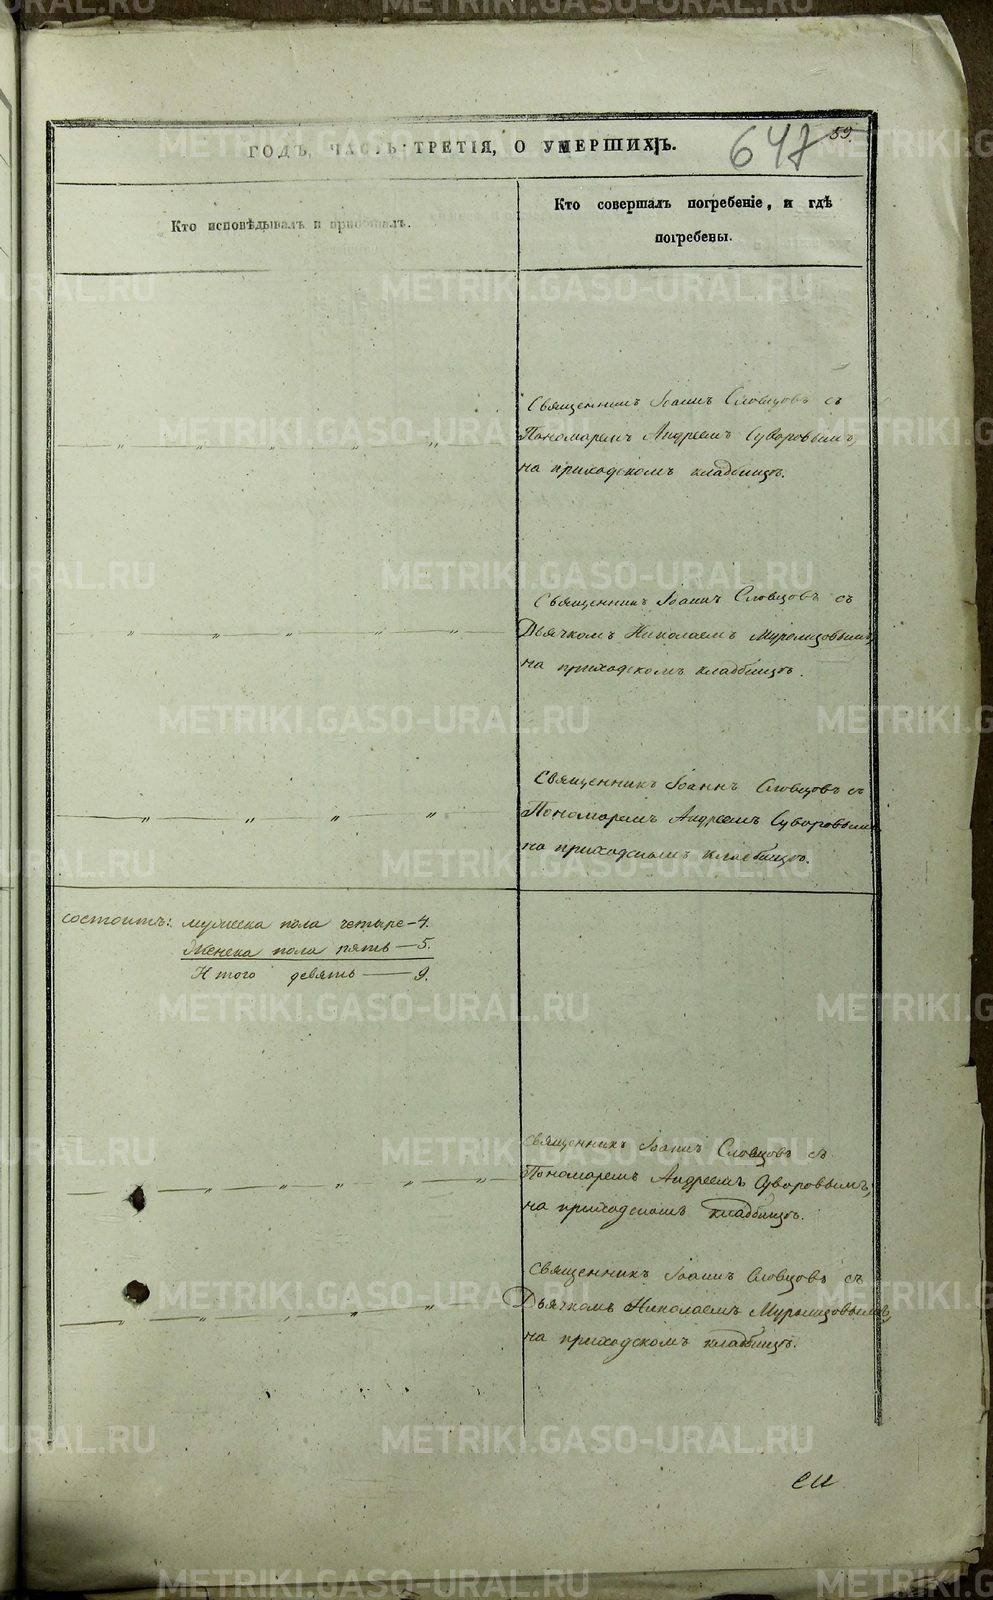 ГОДЪ, ЧАСТЬ ТРЕТІЯ, О УМЕРШИХЪ.
647
59.
Кто исповѣдывалъ и пріобщалъ.
Кто совершалъ погребеніе, и гдѣ
погребены.
Священникъ Іоаннъ Словцовъ съ
Пономаремъ Андреемъ Суворовымъ,
на приходскомъ кладбищѣ.
Священникъ Іоаннъ Словцовъ съ
Дьячкомъ Николаемъ Муромцовымъ,
на приходскомъ кладбищѣ.
Священникъ Іоаннъ Словцовъ съ
Пономаремъ Андреемъ Суворовымъ
на приходскомъ кладбищѣ.
состоитъ: мужеска пола четыре – 4.
Женска пола пять – 5.
Итого девять – 9.
Священникъ Іоаннъ Словцовъ съ
Пономаремъ Андреемъ Суворовымъ,
на приходскомъ кладбищѣ.
Священникъ Іоаннъ Словцовъ съ
Дьячкомъ Николаемъ Муромцовымъ,
на приходскомъ кладбищѣ.
METRIKI.GASO-URAL.RU